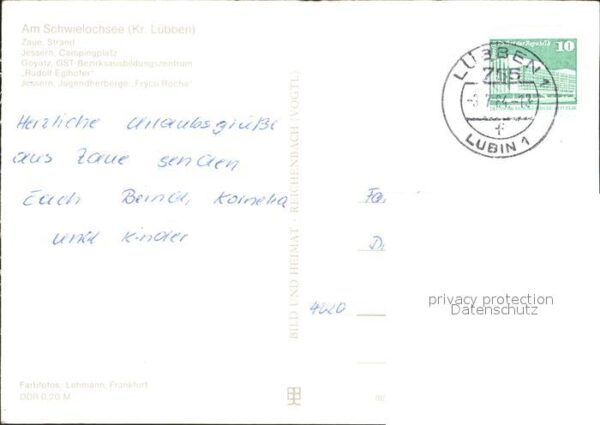 Am Schwielochsee (Kr. Lübben)
Zaue, Strand
Jessern, Campingplatz
Goyatz, GST-Bezirksausbildungszentrum
„Rudolf Eglhofer“
Jessern, Jugendherberge „Fryco Rocha“
Herzliche Urlaubsgrüße
aus Zaue senden
Euch Bernd, Kornelia
und Kinder
Farbfotos: Lehmann, Frankfurt
DDR 0,20 M
BILD UND HEIMAT · REICHENBACH (VOGTL)
LÜBBEN 1
LUBIN 1
10
Fa
D
4020
privacy protection
Datenschutz